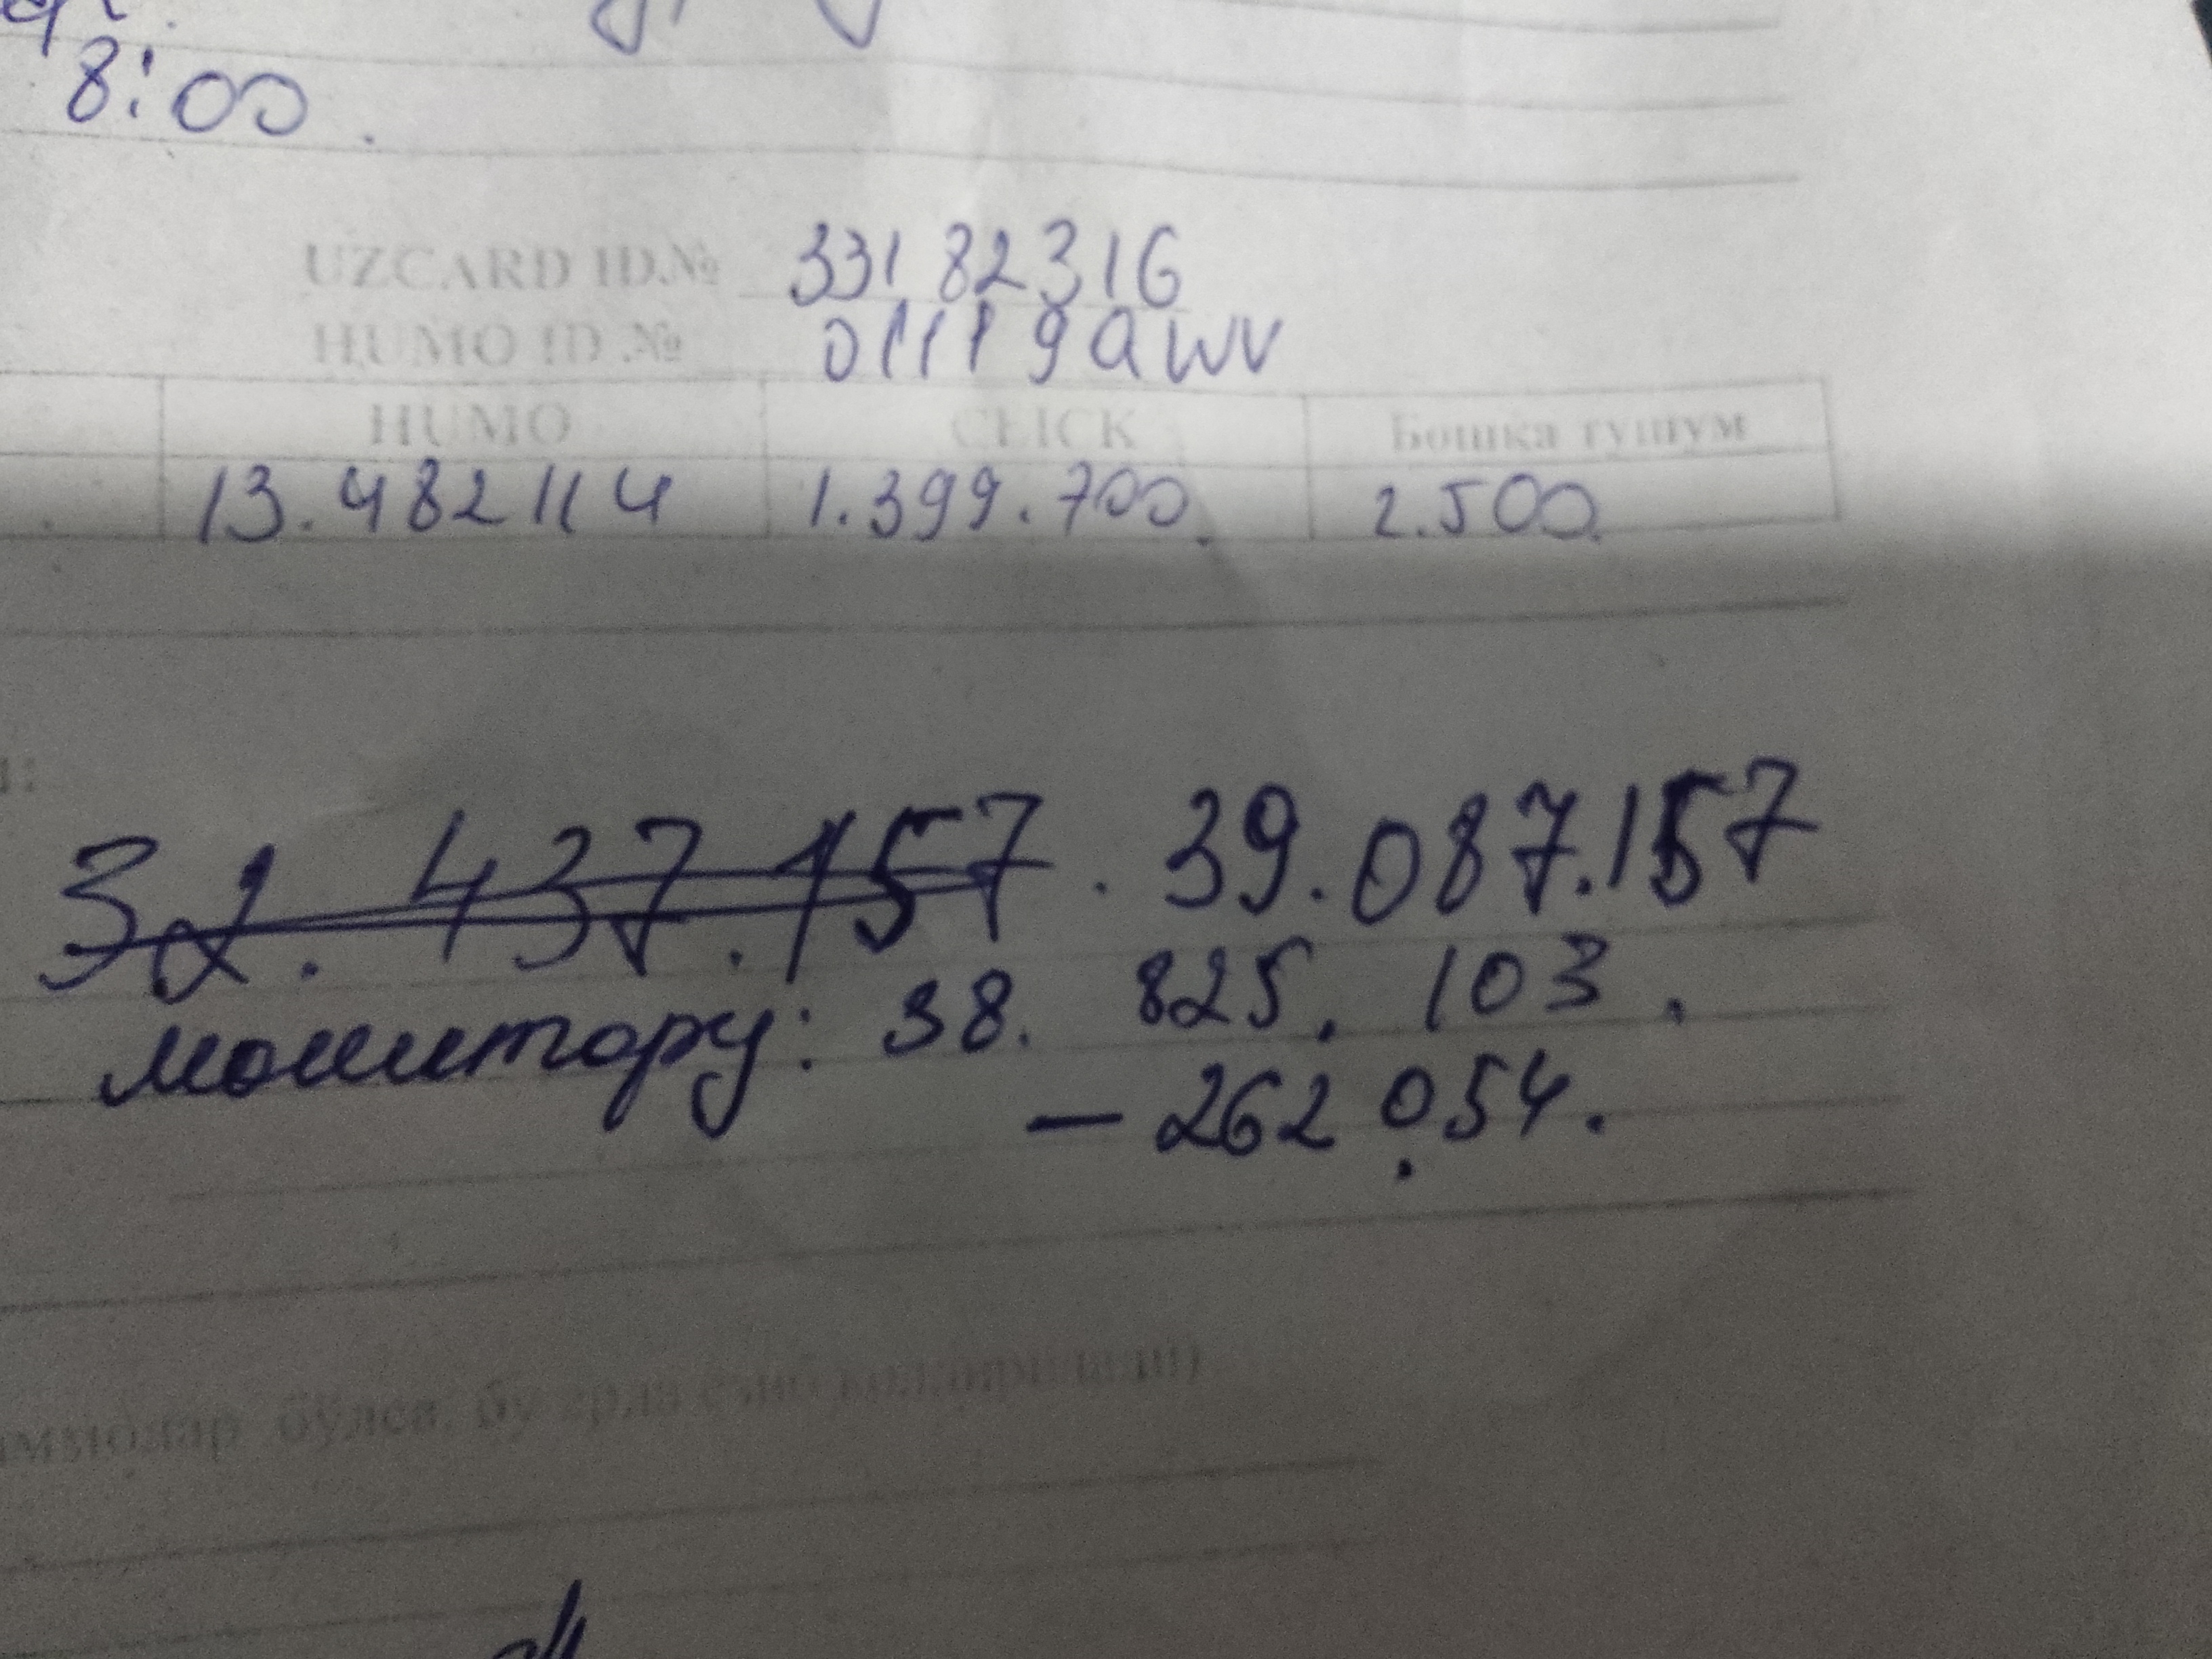 8:00.
UZCARD ID.№ 33182316
HUMO ID.№ 01119awv
HUMO CLICK Бошка тушум
13.482114 1.399.700. 2.500.
32.437.157. 39.087.157
монитору: 38. 825. 103.
- 262.054.
бўлса, бу ерга